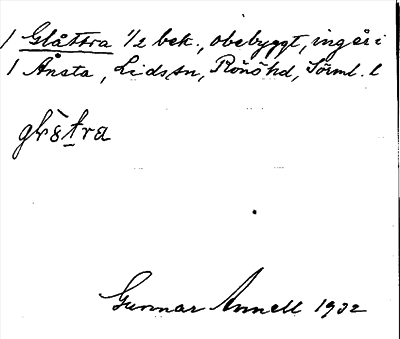 1 Glåttra 1/2 bek., obebyggt, ingår i
1 Ånsta, Lids sn, Rönö hd, Sörml. l
glåtra
Gunnar Annell 1932